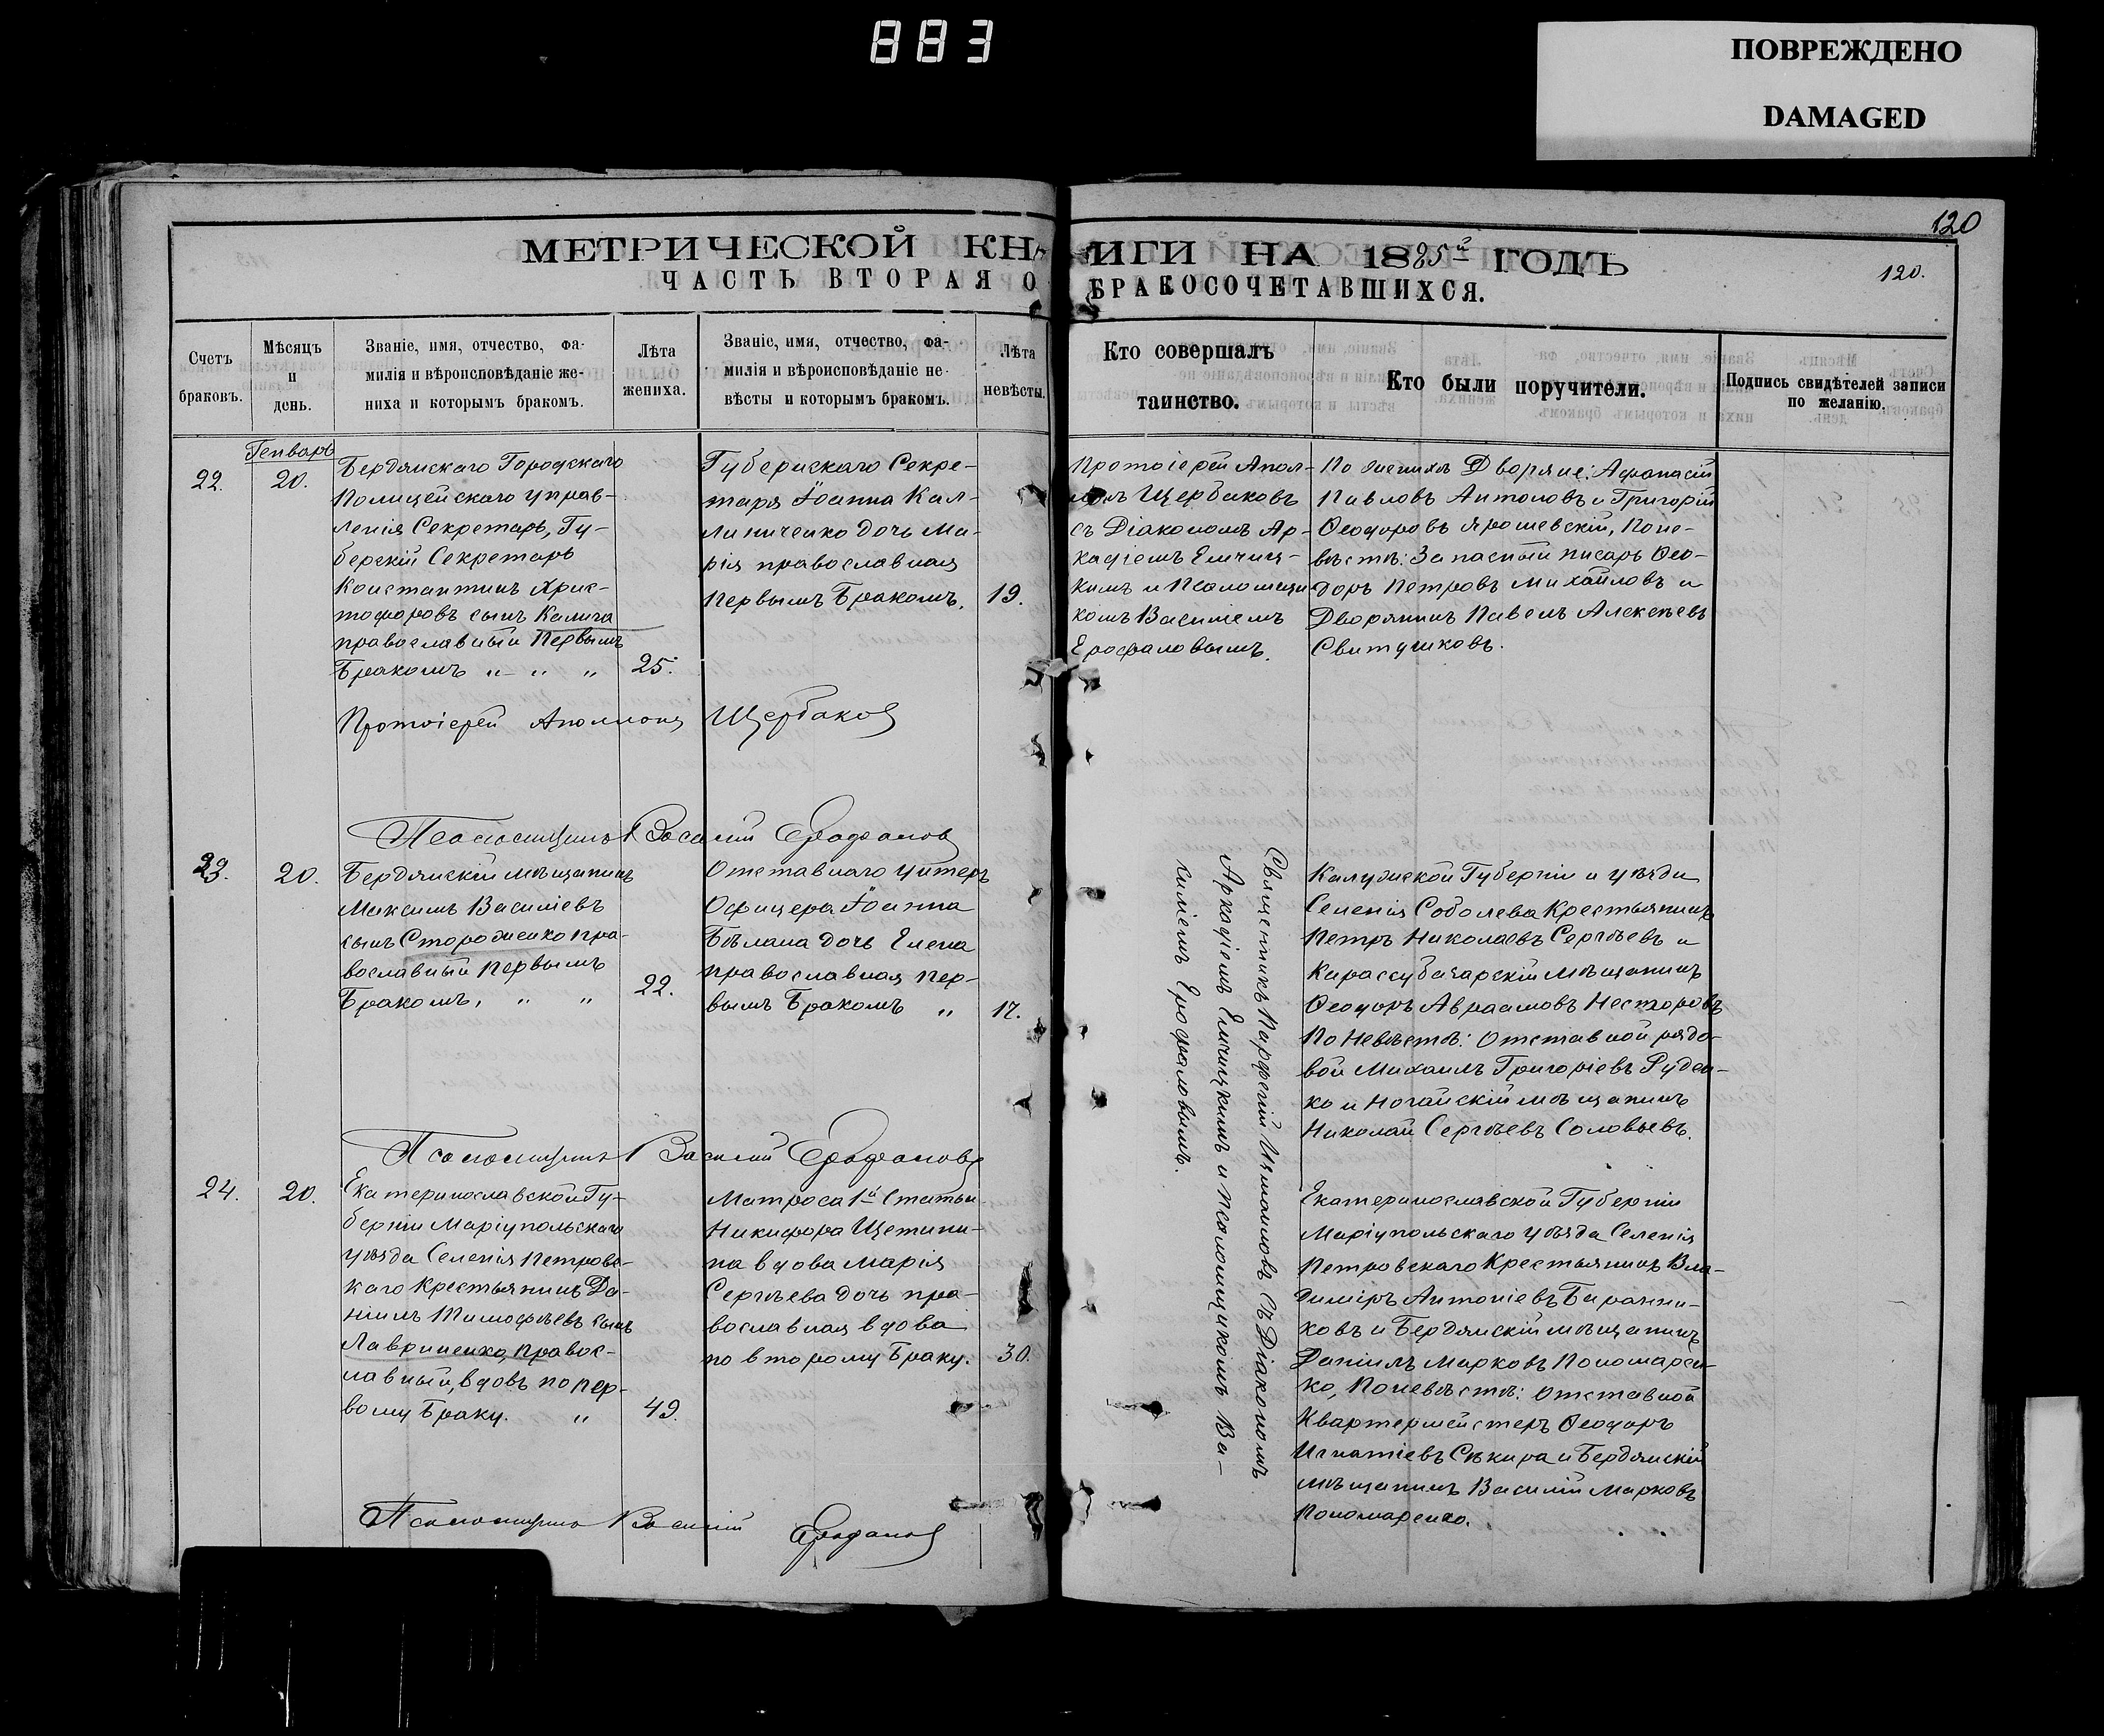 883
ПОВРЕЖДЕНО
DAMAGED
120
МЕТРИЧЕСКОЙ КНИГИ НА 1885й ГОДЪ
120.
ЧАСТЬ ВТОРАЯ О БРАКОСОЧЕТАВШИХСЯ.
Счетъ
браковъ.
Мѣсяцъ
и
день.
Званіе, имя, отчество, фа-
милія и вѣроисповѣданіе же-
ниха и которымъ бракомъ.
Лѣта
жениха.
Званіе, имя, отчество, фа-
милія и вѣроисповѣданіе не-
вѣсты и которымъ бракомъ.
Лѣта
невѣсты.
Кто совершалъ
таинство.
Кто были поручители.
Подпись свидѣтелей записи
по желанію.
Генварь
22.
20.
Бердянскаго Городскаго
Полицейскаго управ-
ленія Секретарь, Гу-
берскій Секретарь
Константинъ Хрис-
тофоровъ сынъ Калича
православный Первымъ
Бракомъ „ „ „
25.
Губернскаго Секре-
таря Іоанна Кал-
линиченко дочь Ма-
рія православная
Первымъ Бракомъ.
19.
Протоіерей Апол-
лонъ Щербаковъ
съ Діакономъ Ар-
кадіемъ Емчиц-
кимъ и Псаломщи-
комъ Василіемъ
Ерофаловымъ.
По женихѣ Дворяне: Афанасій
Павловъ Антоновъ и Григорій
Ѳеодоровъ Ярошевскій, Поне-
вѣстѣ: Запасный писарь Ѳео-
доръ Петровъ Михайловъ и
Дворянинъ Павелъ Алексѣевъ
Свитушковъ.
Протоіерей Аполлонъ Щербаковъ
Псаломщикъ Василій Ерофаловъ
23.
20.
Бердянскій мѣщанинъ
Максимъ Василіевъ
сынъ Стороженко пра-
вославный Первымъ
Бракомъ. „ „
22.
Отставнаго унтеръ
Офицера Іоанна
Бѣлана дочь Елена
православная пер-
вымъ Бракомъ „
17.
Священникъ Парфеній съ Діакономъ
Аркадіемъ Емчицкимъ и Псаломщикомъ Ва-
силіемъ Ерофаловымъ.
Калужской Губерніи и уѣзда
Селенія Соболева Крестьянинъ
Петръ Николаевъ Сергѣевъ и
Карассубазарскій мѣщанинъ
Ѳеодоръ Авраамовъ Несторовъ
По Невѣстѣ: Отставной рядо-
вой Михаилъ Григоріевъ Руден-
ко и Ногайскій мѣщанинъ
Николай Сергѣевъ Соловьевъ.
Псаломщикъ Василій Ерофаловъ
24.
20.
Екатеринославской Гу-
берніи Маріупольскаго
уѣзда Селенія Петровс-
каго Крестьянинъ Да-
ніилъ Тимофѣевъ сынъ
Лавриненко, правос-
лавный, вдовъ по пер-
вому Браку. „
49.
Матроса 1й Статьи
Никифора Щетини-
на вдова Марія
Сергѣева дочь пра-
вославная вдова
по второму Браку.
30.
Екатеринославской Губерніи
Маріупольскаго уѣзда Селенія
Петровскаго Крестьянинъ Вла-
диміръ Антоніевъ Баранни-
ковъ и Бердянскій мѣщанинъ
Даніилъ Марковъ Пономарен-
ко, Поневѣстѣ: Отставной
Квартермейстеръ Ѳеодоръ
Игнатіевъ Сѣкира и Бердянскій
мѣщанинъ Василій Марковъ
Пономаренко.
Псаломщикъ Василій Ерофаловъ